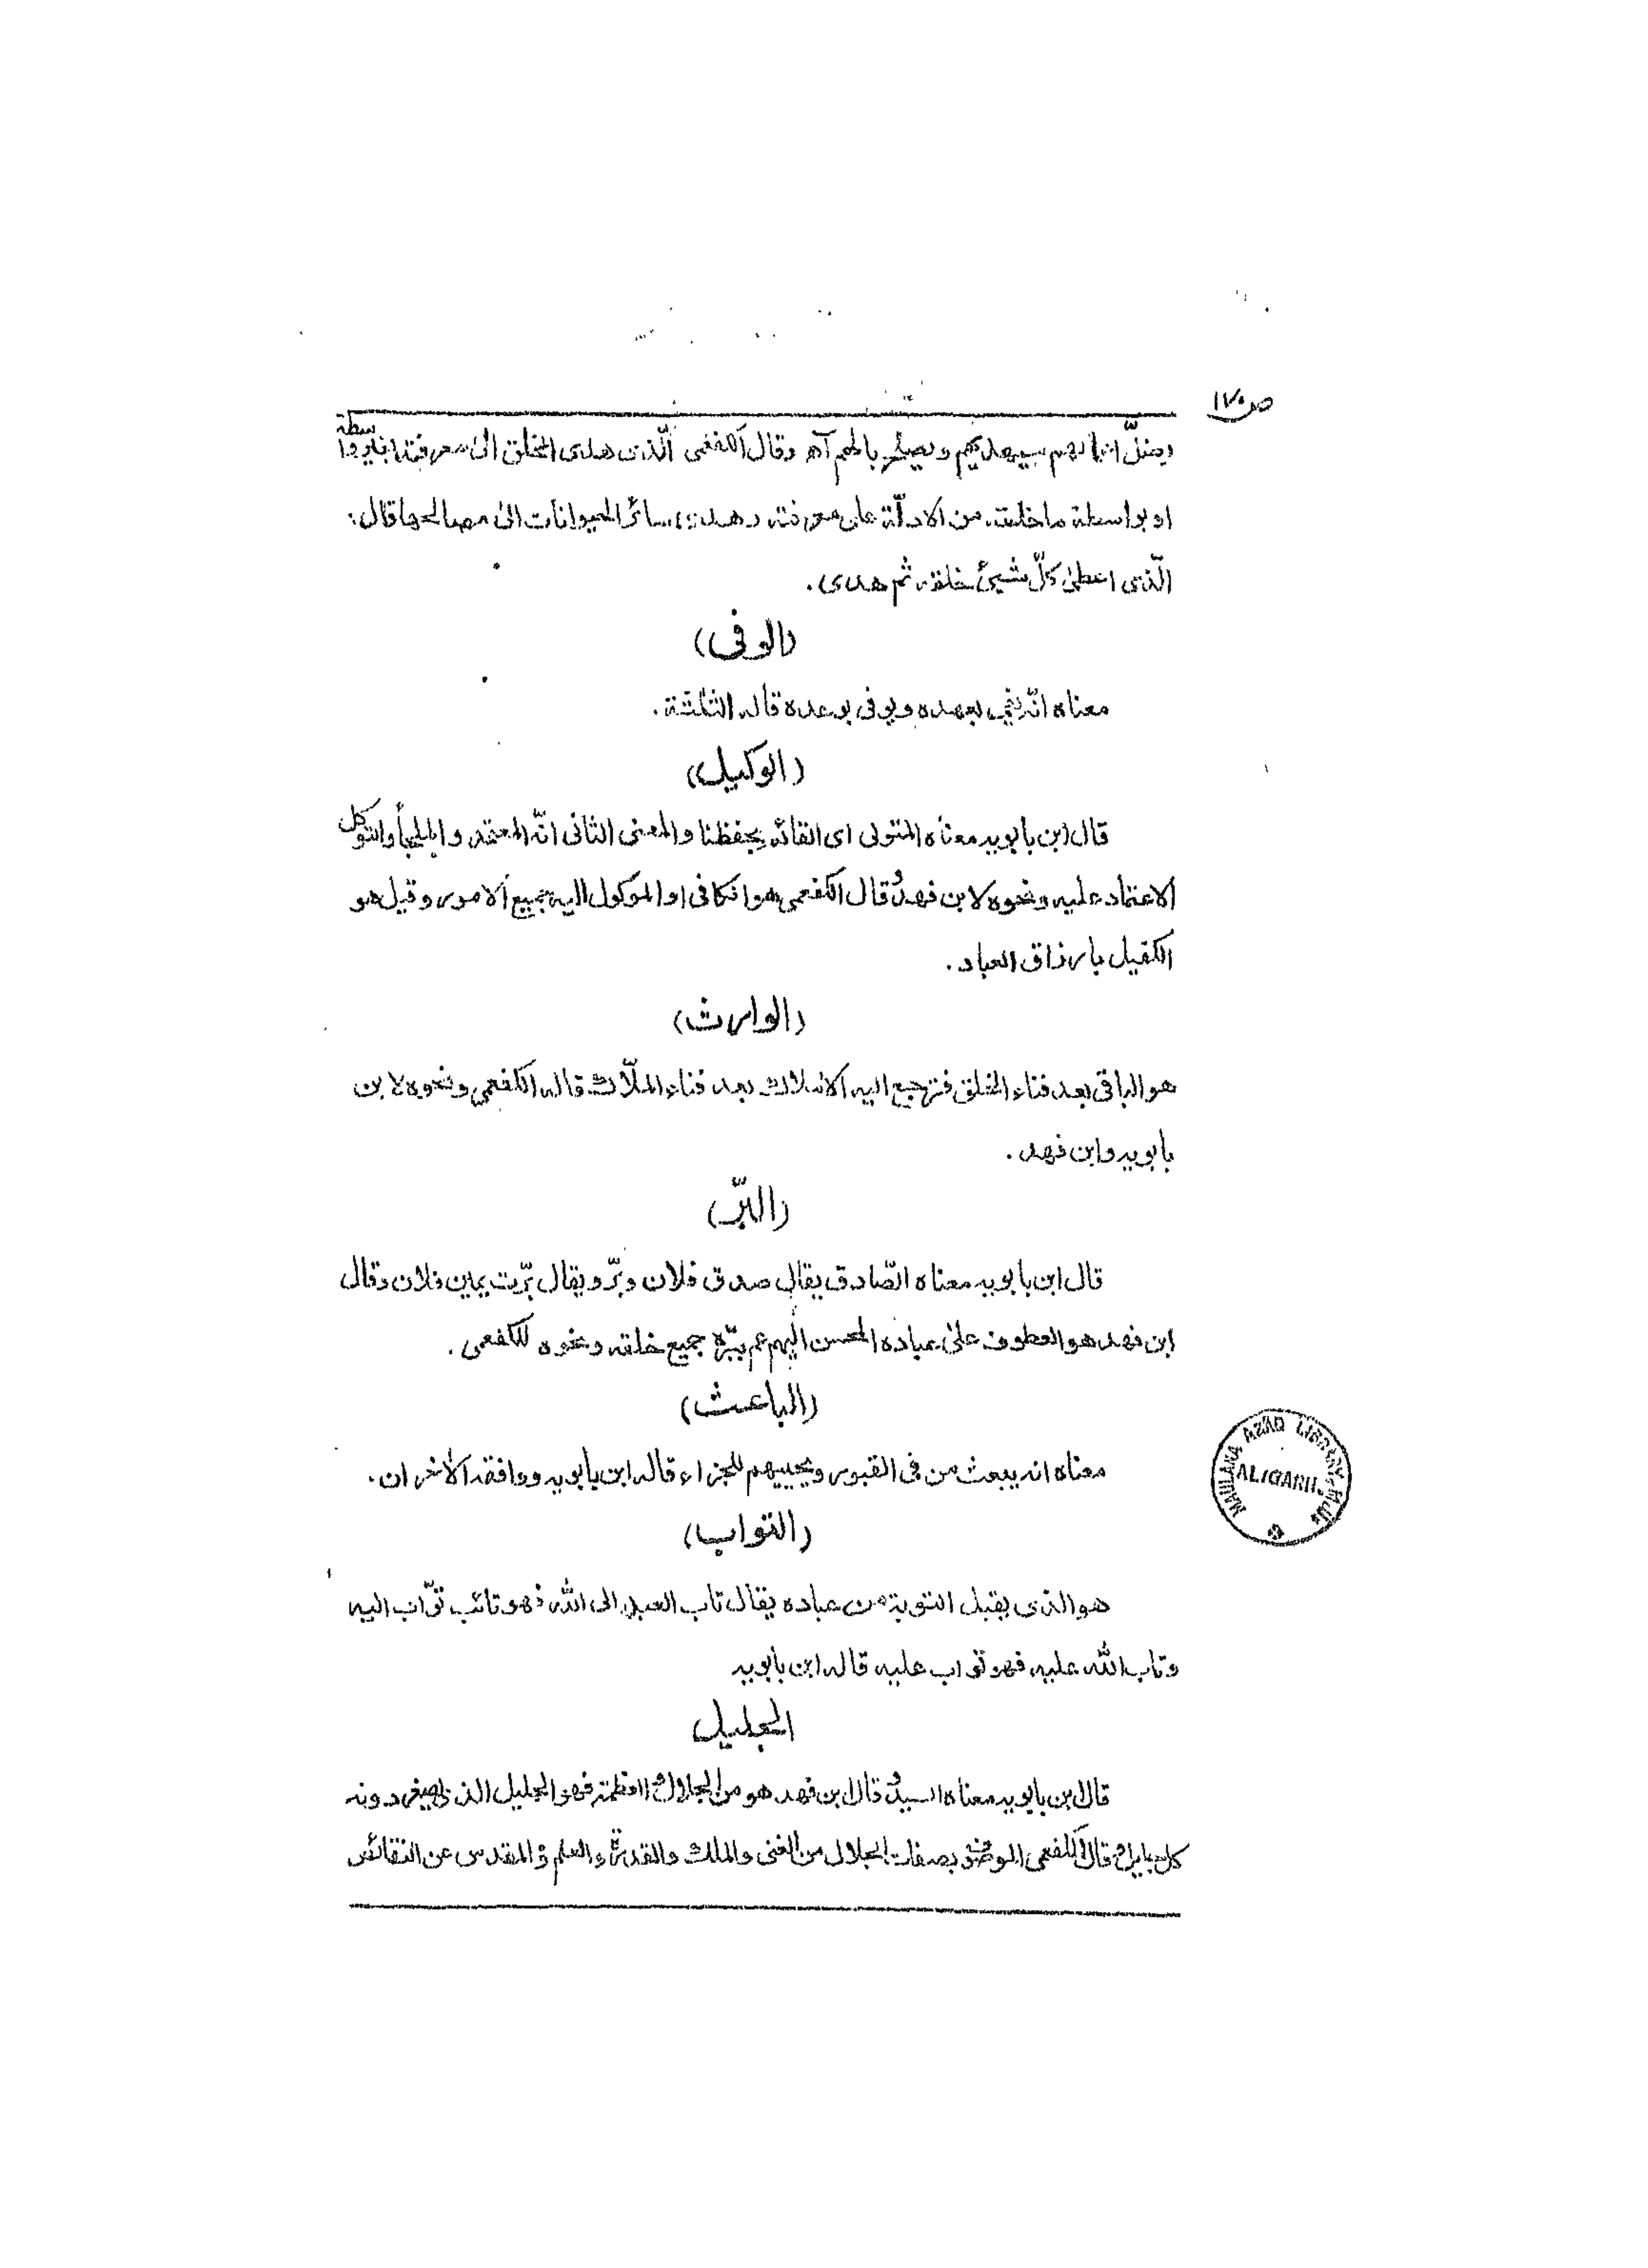 ص١٧٠
اعمالهم سيهديهم ويصلح بالهم آه وقال الكفعمى الّذى هدى الخلق الىٰ معرفته بغير واسطة
او بواسطة ما خلقه من الادلّة على معرفته وهدى سائر الحيوانات الىٰ مصالحها قال:
الّذى اعطىٰ كلّ شيئ خلقه ثم هدى.
(الوفى)
معناه انّه يفى بعهده ويوفى بوعده قاله الثلثة.
(الوكيل)
قال ابن بابويه معناه المتولى اى القائم بحفظنا والمعنى الثانى انّه المعتمد والملجأ والتوكل
الاعتماد عليه ونحوه لابن فهد وقال الكفعمى هو الكافى او الموكول اليه جميع الامور وقيل هو
الكفيل بارزاق العباد.
(الوارث)
هو الباقى بعد فناء الخلق فترجع اليه الاملاك بعد فناء الملّاك قاله الكفعمى ونحوه لابن
بابويه وابن فهد.
(البرّ)
قال ابن بابويه معناه الصّادق يقال صدق فلان وبرّ ويقال برّت يمين فلان وقال
ابن فهد هو العطوف علىٰ عباده المحسن اليهم عم ببرّه جميع خلقه ونحوه للكفعمى.
(الباعث)
معناه انه يبعث من فى القبور ويحييهم للجزاء قاله ابن بابويه ووافقه الأخران.
(التواب)
هو الذى يقبل التوبة من عباده يقال تاب العبد الى الله فهو تائب توّاب اليه
وتاب الله عليه فهو تواب عليه قاله ابن بابويه
الجليل
قال ابن بابويه معناه السيد وقال ابن فهد هو من الجلال والعظمة فهو الجليل الذى يصغر دونه
كل جليل وقال الكفعمى الموصوف بصفات الجلال من الغنى والملك والقدرة والعلم والمقدس عن النقائص
MAULANA AZAD LIBRARY
ALIGARH.